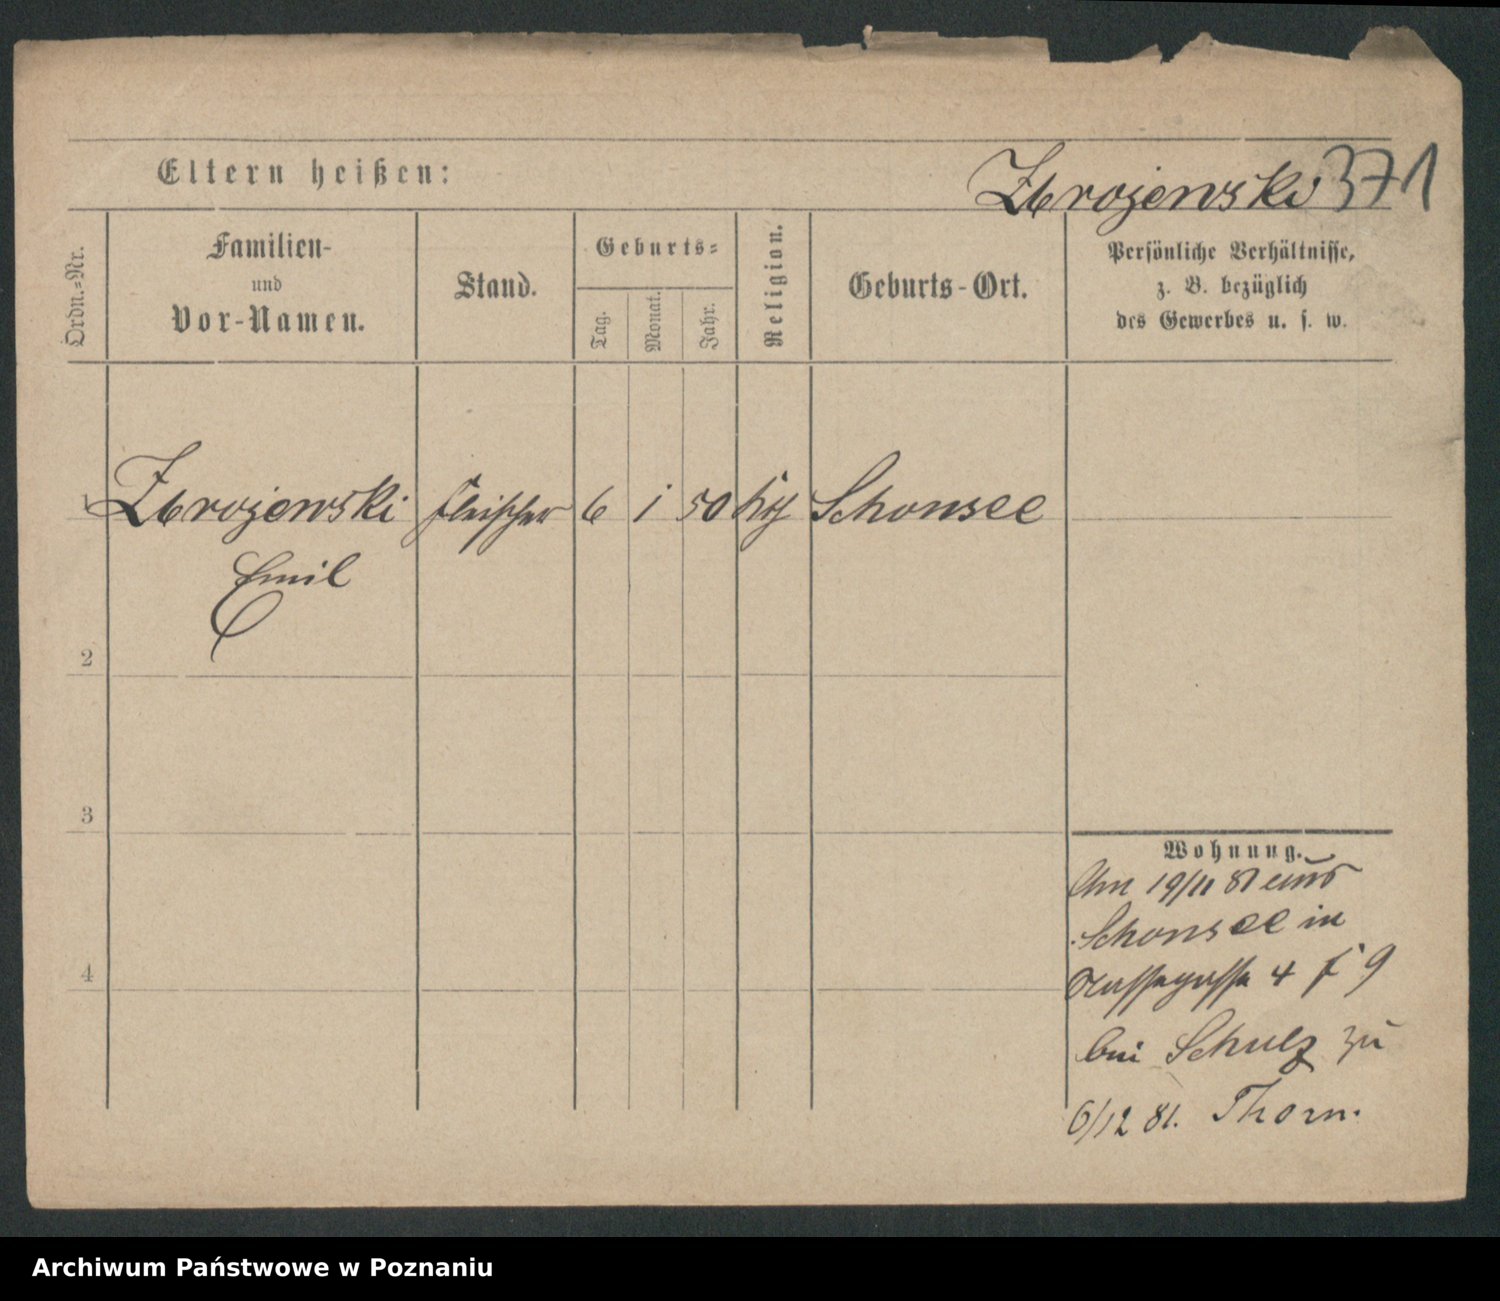 Eltern heißen:
Zbrojewski 371
Ordn.=Nr.
Familien-
und
Vor-Namen.
Stand.
Geburts=
Tag.
Monat.
Jahr.
Religion.
Geburts-Ort.
Persönliche Verhältnisse,
z. B. bezüglich
des Gewerbes u. s. w.
1 Zbrojewski Fleischer 6 1 50 Schonsee
Emil
2
3
4
Wohnung.
Am 19/11 81 aus
Schonsee in
4 9
bei Schulz zu
6/12 81. Thorn.
Archiwum Państwowe w Poznaniu